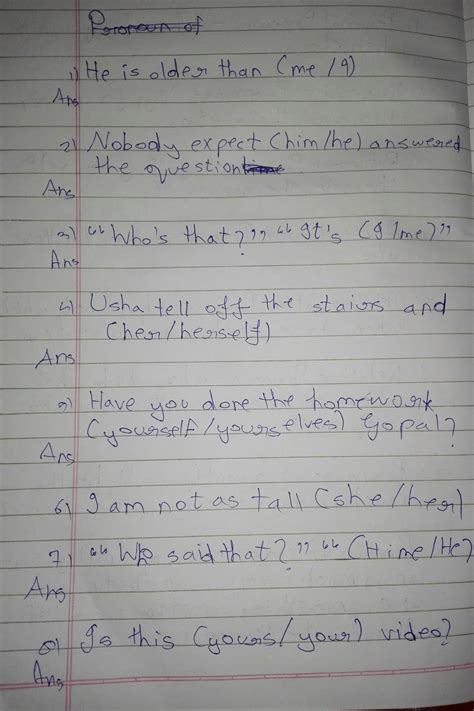 Pronoun of
1) He is older than (me / I)
Ans
2) Nobody expect (him/he) answered
the question
Ans
3) "Who's that?" "It's (I/me)"
Ans
4) Usha tell off the stairs and
(her/herself)
Ans
5) Have you done the homework
(yourself/yourselves) Gopal?
Ans
6) I am not as tall (she/her)
7) "Who said that?" "(Hime/He)
Ans
8) Is this (yours/your) video?
Ans